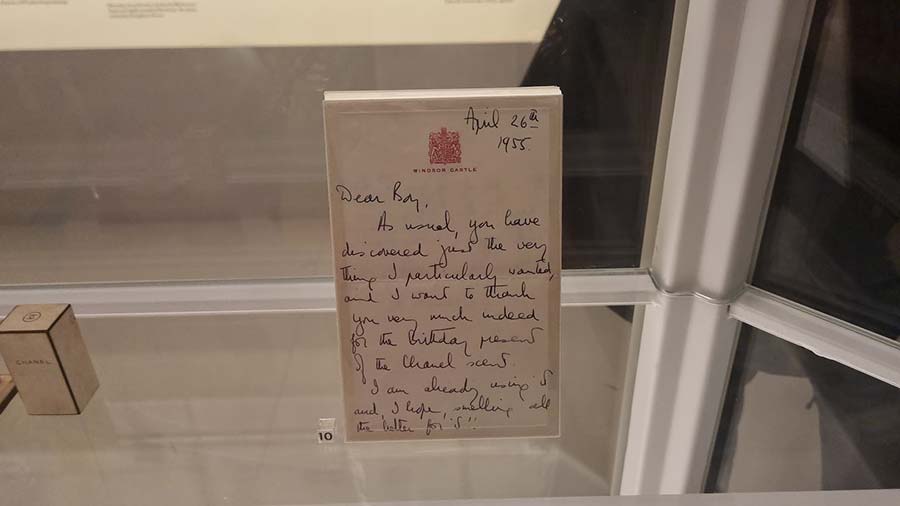 April 26th
1955.
WINDSOR CASTLE
Dear Boy,
As usual, you have
discovered just the very
thing I particularly wanted,
and I want to thank
you very much indeed
for the Birthday present
of the Chanel scent.
I am already using it
and, I hope, smelling all
the better for it!!
CHANEL
10